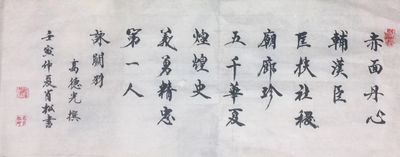 赤面丹心
輔漢臣
匡扶社稷
廟廊珍
五千華夏
煌煌史
義勇精忠
第一人
詠關羽
高德光撰
壬寅仲夏肖松書